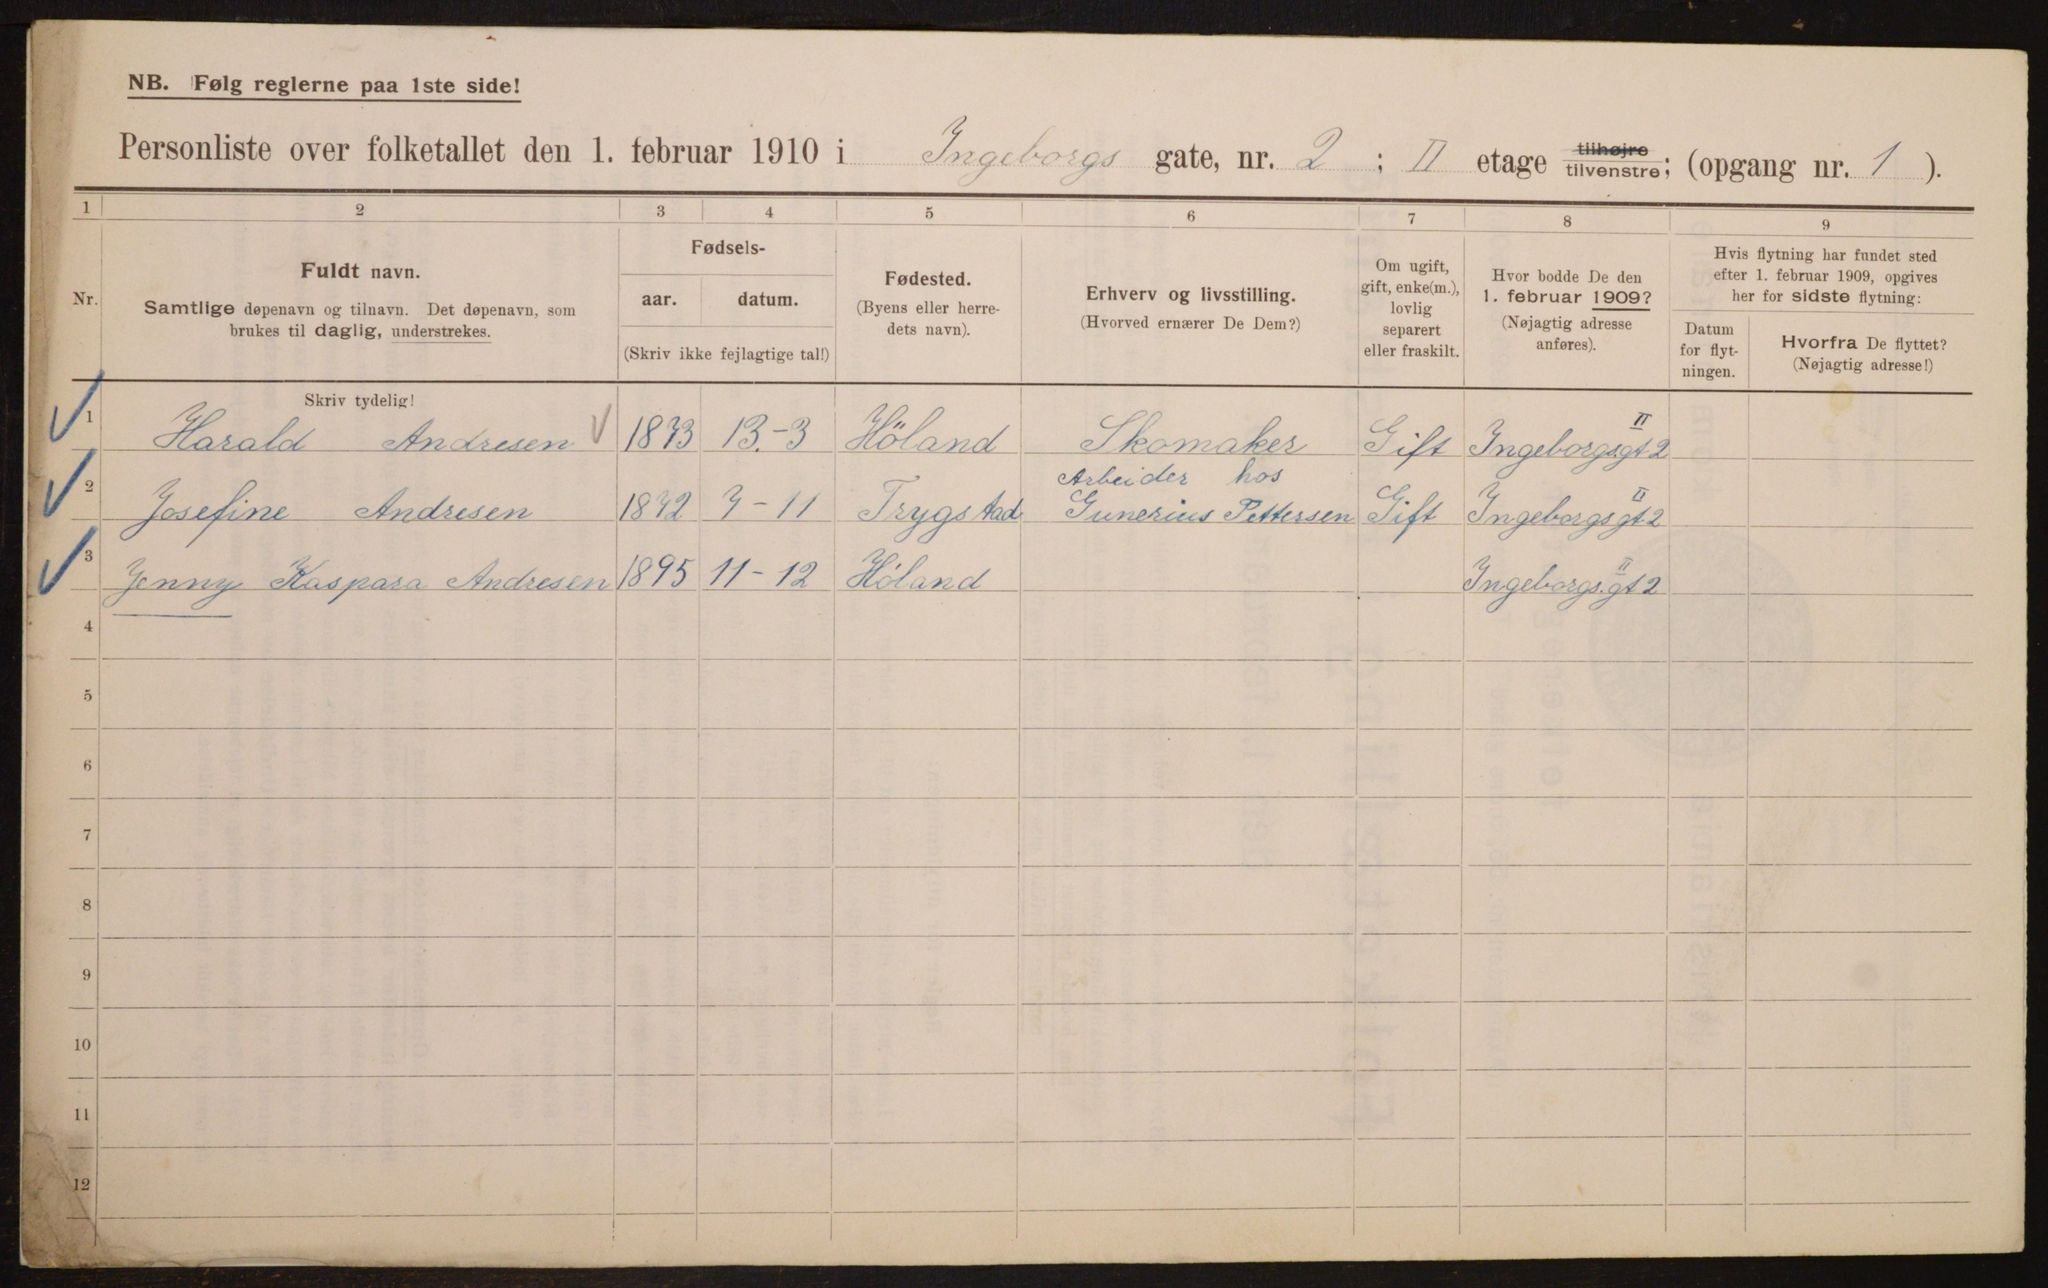 NB. Følg reglerne paa 1ste side!
Personliste over folketallet den 1. februar 1910 i Ingeborgs gate, nr. 2 ; II etage tilhøjre tilvenstre; (opgang nr. 1 ).
1 2 3 4 5 6 7 8 9
Nr.
Fuldt navn.
Samtlige døpenavn og tilnavn. Det døpenavn, som
brukes til daglig, understrekes.
Fødsels-
aar. datum.
(Skriv ikke fejlagtige tal!)
Fødested.
(Byens eller herre-
dets navn).
Erhverv og livsstilling.
(Hvorved ernærer De Dem?)
Om ugift,
gift, enke(m.),
lovlig
separert
eller fraskilt.
Hvor bodde De den
1. februar 1909?
(Nøjagtig adresse
anføres).
Hvis flytning har fundet sted
efter 1. februar 1909, opgives
her for sidste flytning:
Datum
for flyt-
ningen.
Hvorfra De flyttet?
(Nøjagtig adresse!)
Skriv tydelig!
1 Harald Andresen 1873 13.-3 Höland Skomaker Gift Ingeborgs.gt 2 II
2 Josefine Andresen 1872 7-11 Trygstad Arbeider hos
Gunerius Pettersen Gift Ingeborgs gt 2 II
3 Jenny Kaspara Andresen 1895 11-12 Höland Ingeborgs.gt 2 II
4
5
6
7
8
9
10
11
12